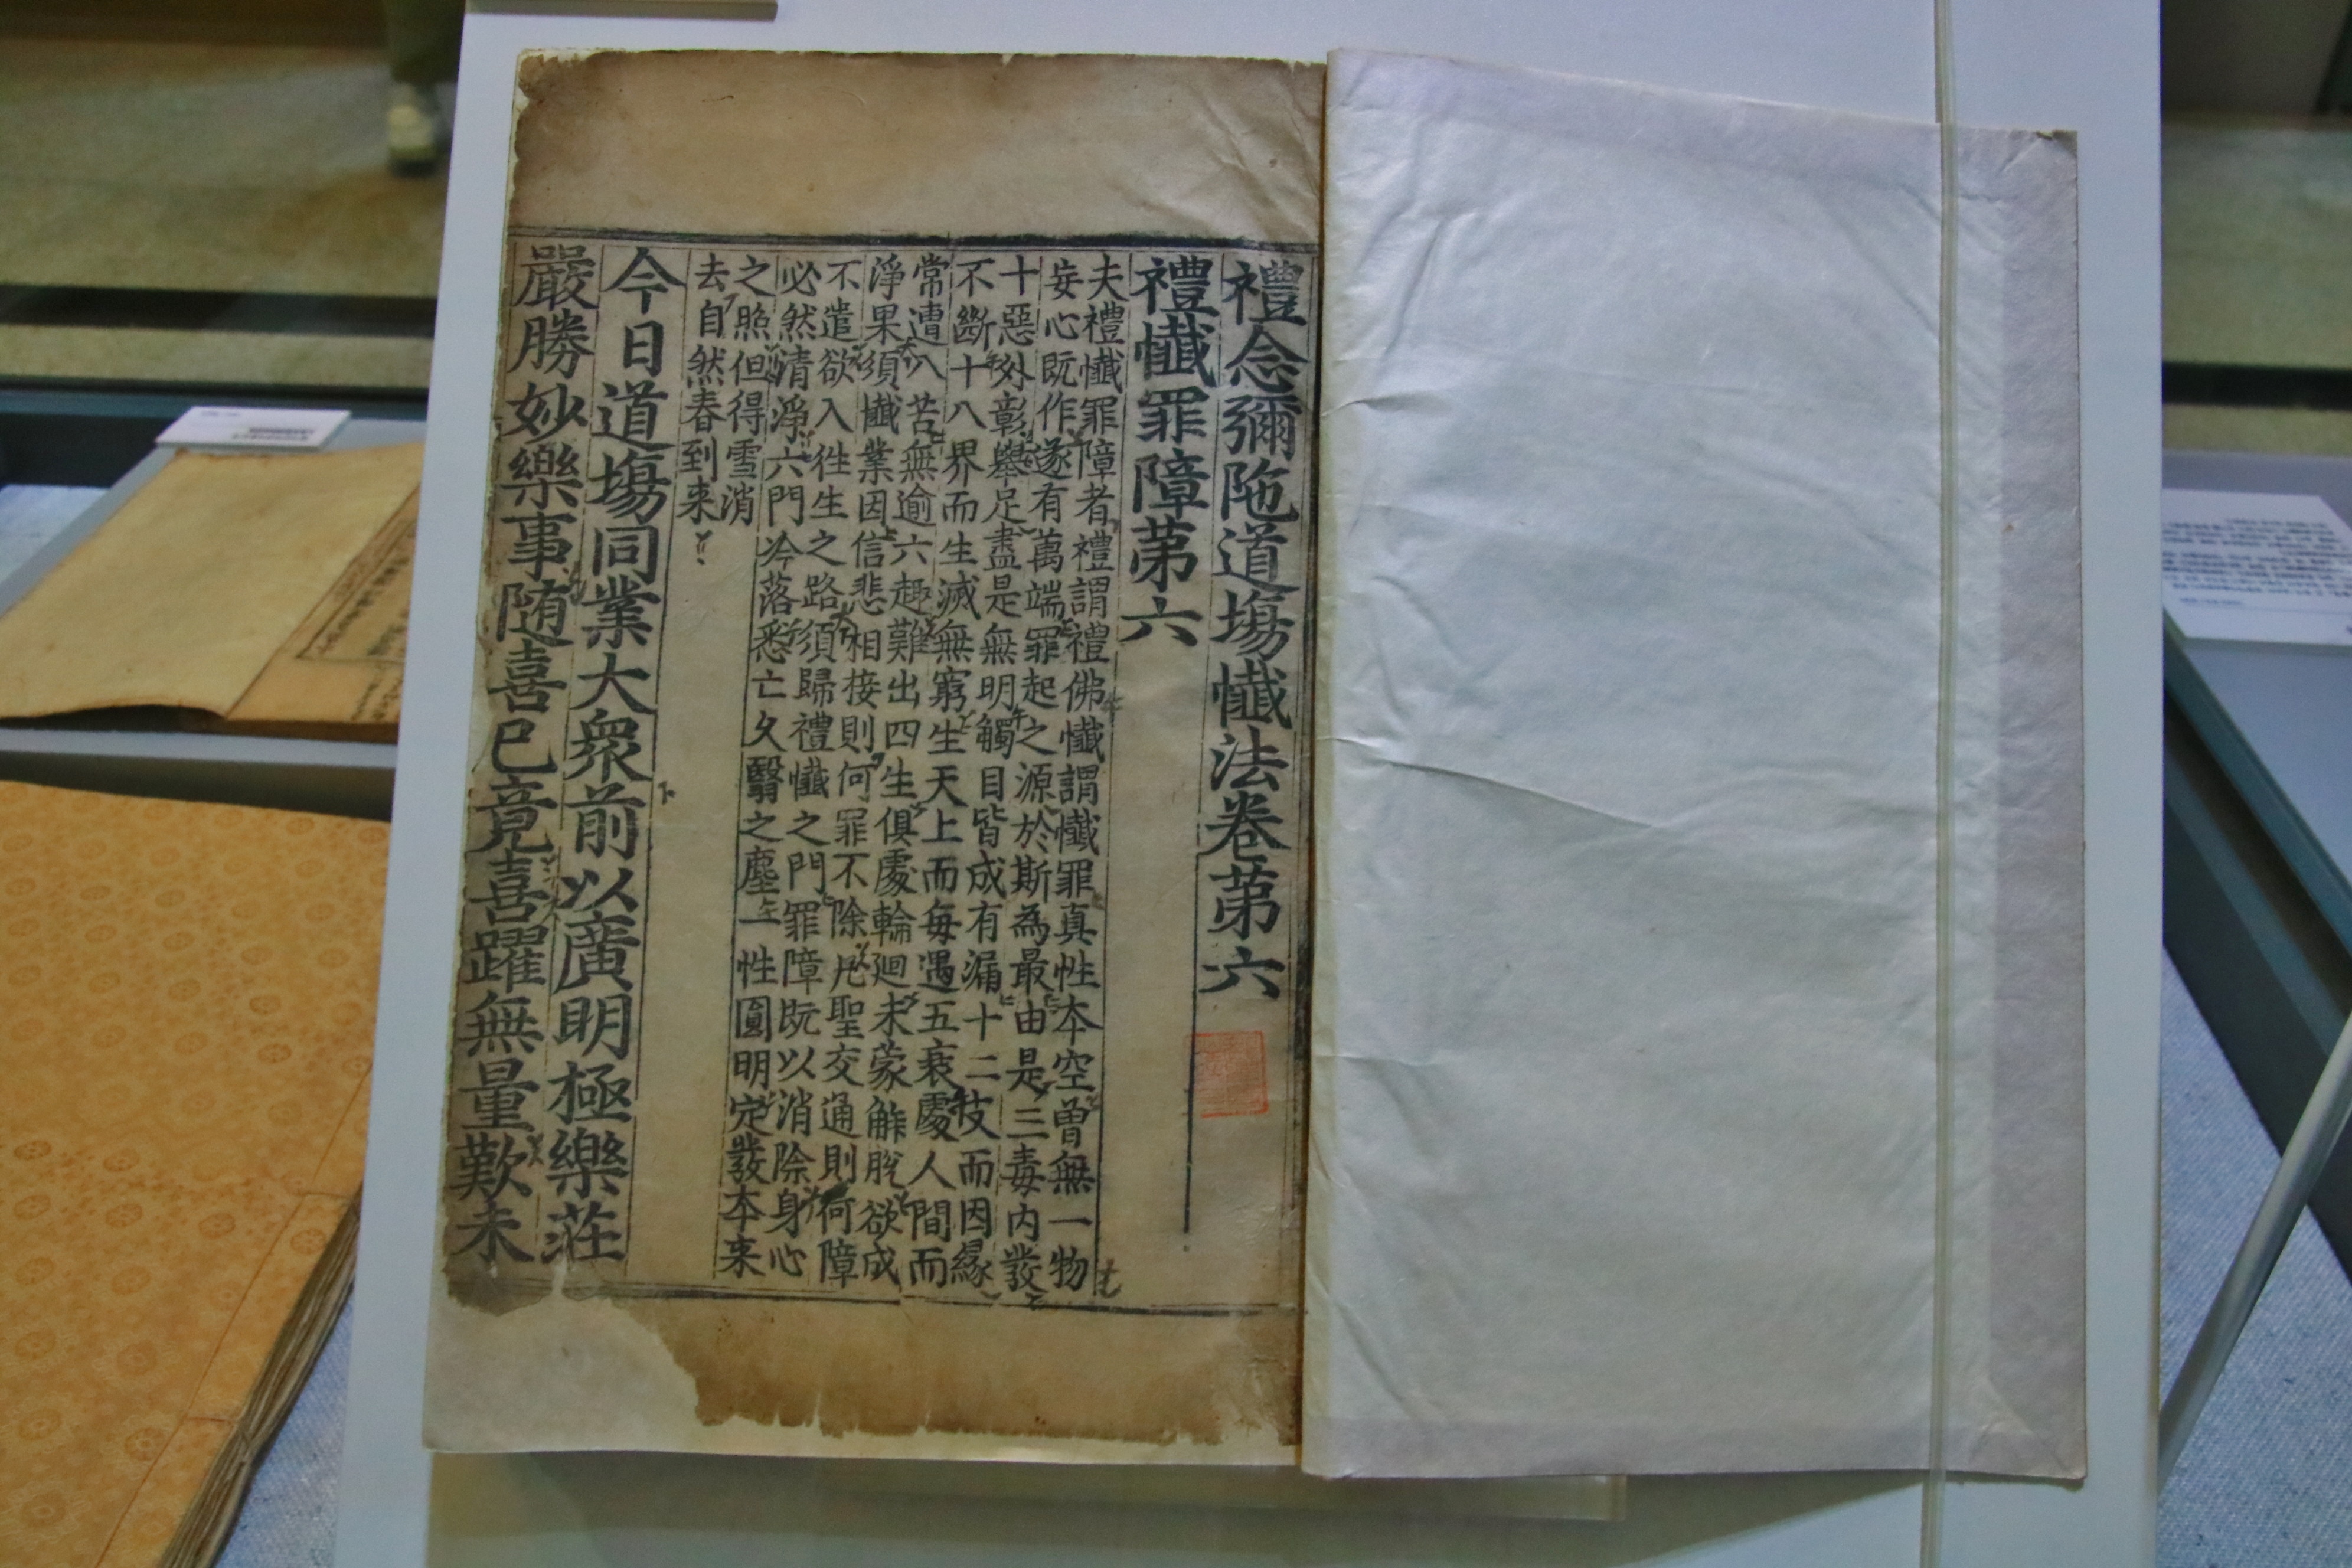 禮念彌陁道場懺法卷第六
禮懺罪障第六
夫禮懺罪障者禮謂禮佛懺謂懺罪真性本空曾無一物
妄心既作遂有萬端罪起之源於斯為最由是三毒內發
十惡外彰舉足盡是無明觸目皆成有漏十二支而因緣
不斷十八界而生滅無窮生天上而每遇五衰處人間而
常遭八苦無逾六趣難出四生俱處輪迴未蒙解脫欲成
淨果須懺業因信悲相接則何罪不除凡聖交通則何障
不遣欲入徃生之路須歸禮懺之門罪障既以消除身心
必然清淨六門冷落悉亡久翳之塵一性圓明定發本来
之照但得雪消
去自然春到来
今日道場同業大衆前以廣明極樂莊
嚴勝妙樂事随喜已竟喜躍無量歎未